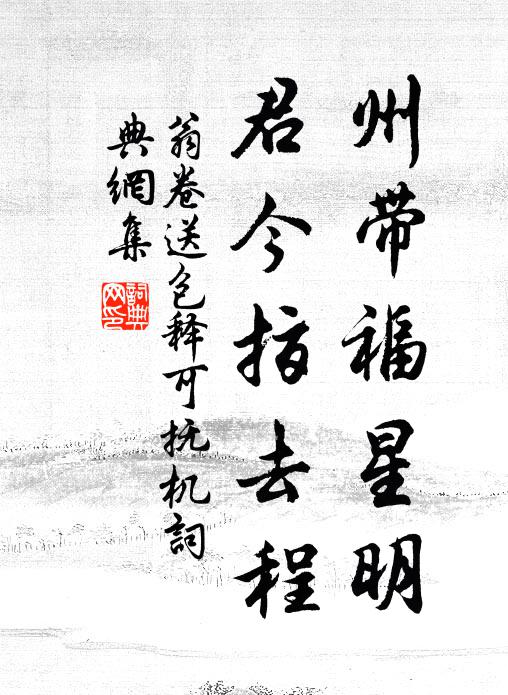 州带福星明
君今指去程
翁卷送包释可抚机詞
典網集
詞典
网印